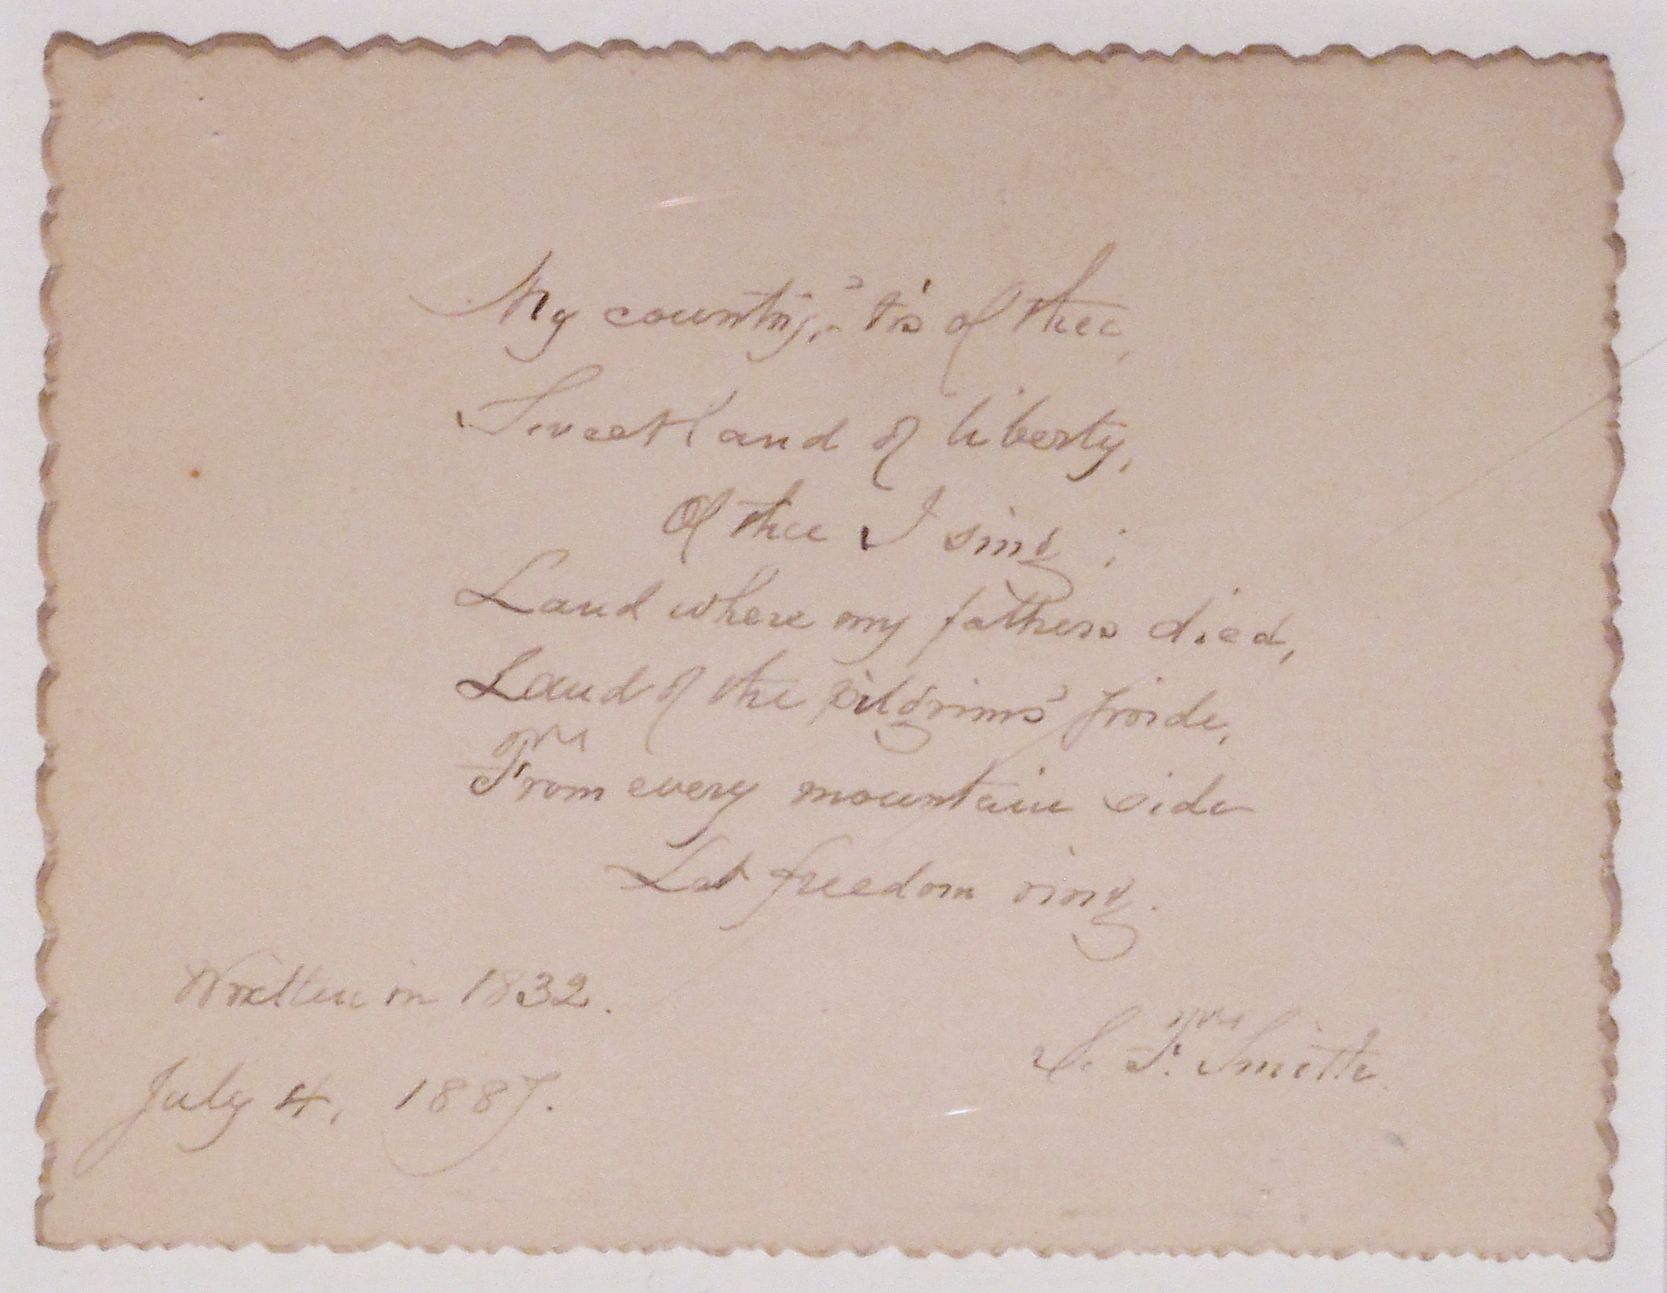 My country, 'tis of thee,
Sweet land of liberty,
Of thee I sing;
Land where my fathers died,
Land of the pilgrims' pride,
From every mountain side
Let freedom ring.
Written in 1832.
S. F. Smith.
July 4, 1887.